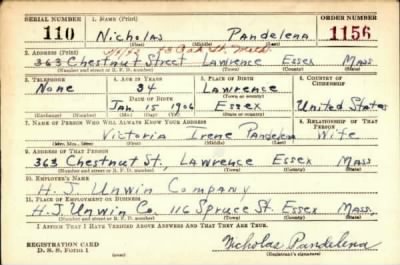 SERIAL NUMBER 1. NAME (Print) ORDER NUMBER
110 Nicholas Pandelena 1156
(First) (Middle) (Last)
2. ADDRESS (Print)
363 Chestnut Street Lawrence Essex Mass.
(Number and street or R. F. D. number) (Town) (County) (State)
3. TELEPHONE 4. AGE IN YEARS 5. PLACE OF BIRTH 6. COUNTRY OF CITIZENSHIP
None 34 Lawrence
(Town or county)
DATE OF BIRTH
Jan 15 1906 Essex United States
(Exchange) (Number) (Mo.) (Day) (Yr.) (State or country)
7. NAME OF PERSON WHO WILL ALWAYS KNOW YOUR ADDRESS 8. RELATIONSHIP OF THAT PERSON
Victoria Irene Pandelena Wife
(Mr., Mrs., Miss) (First) (Middle) (Last)
9. ADDRESS OF THAT PERSON
363 Chestnut St., Lawrence Essex Mass.
(Number and street or R. F. D. number) (Town) (County) (State)
10. EMPLOYER'S NAME
H. J. Unwin Company
11. PLACE OF EMPLOYMENT OR BUSINESS
H. J. Unwin Co. 116 Spruce St. Essex Mass.
(Number and street or R. F. D. number) (Town) (County) (State)
I AFFIRM THAT I HAVE VERIFIED ABOVE ANSWERS AND THAT THEY ARE TRUE.
REGISTRATION CARD
D. S. S. Form 1 Nicholas Pandelena
(Registrant's signature)